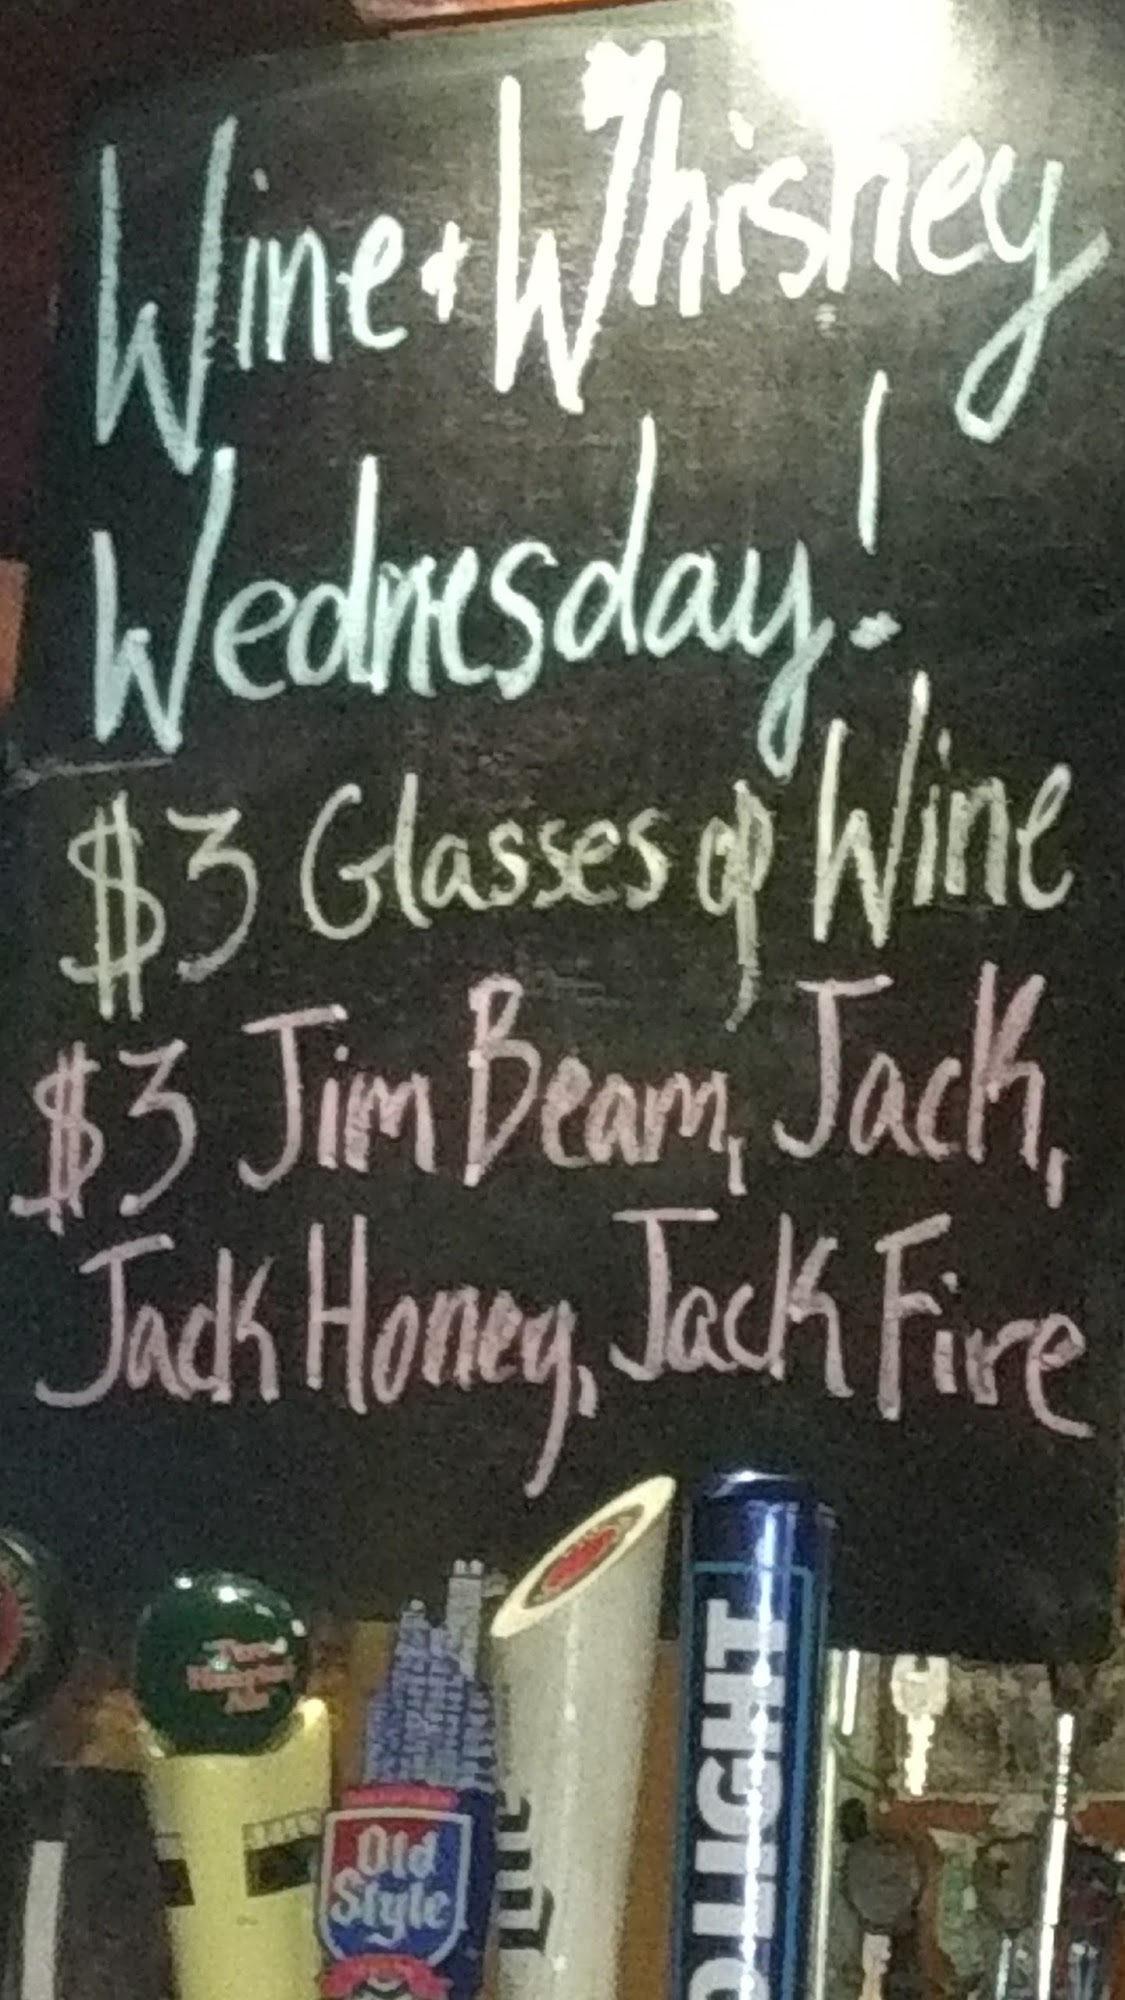 Wine + Whiskey
Wednesday!
$3 Glasses of Wine
$3 Jim Beam, Jack,
Jack Honey, Jack Fire
Old
Style
LIGHT